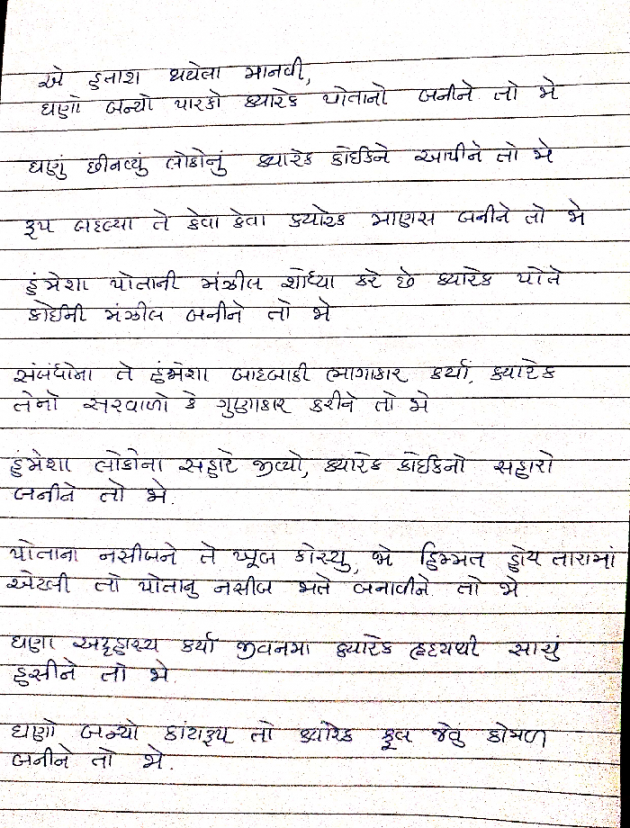 એ હતાશ થયેલા માનવી,
ઘણો બન્યો પારકો ક્યારેક પોતાનો બનીને તો જો
ઘણું છીનવ્યું લોકોનું ક્યારેક કોઈકને આપીને તો જો
રૂપ બદલ્યા તે કેવા કેવા ક્યારેક માણસ બનીને તો જો
હંમેશા પોતાની મંઝીલ શોધ્યા કરે છે ક્યારેક પોતે
કોઈની મંઝીલ બનીને તો જો
સંબંધોના તે હંમેશા બાદબાકી ભાગાકાર કર્યા, ક્યારેક
તેનો સરવાળો કે ગુણાકાર કરીને તો જો
હંમેશા લોકોના સહારે જીવ્યો, ક્યારેક કોઈકનો સહારો
બનીને તો જો.
પોતાના નસીબને તે ખૂબ કોસ્યુ, જો હિમ્મત હોય તારામાં
એટલી તો પોતાનુ નસીબ જાતે બનાવીને તો જો
ઘણા અટ્ટહાસ્ય કર્યા જીવનમા ક્યારેક હૃદયથી સાચું
હસીને તો જો.
ઘણો બન્યો કાંટારૂપ તો ક્યારેક ફૂલ જેવુ કોમળ
બનીને તો જો.